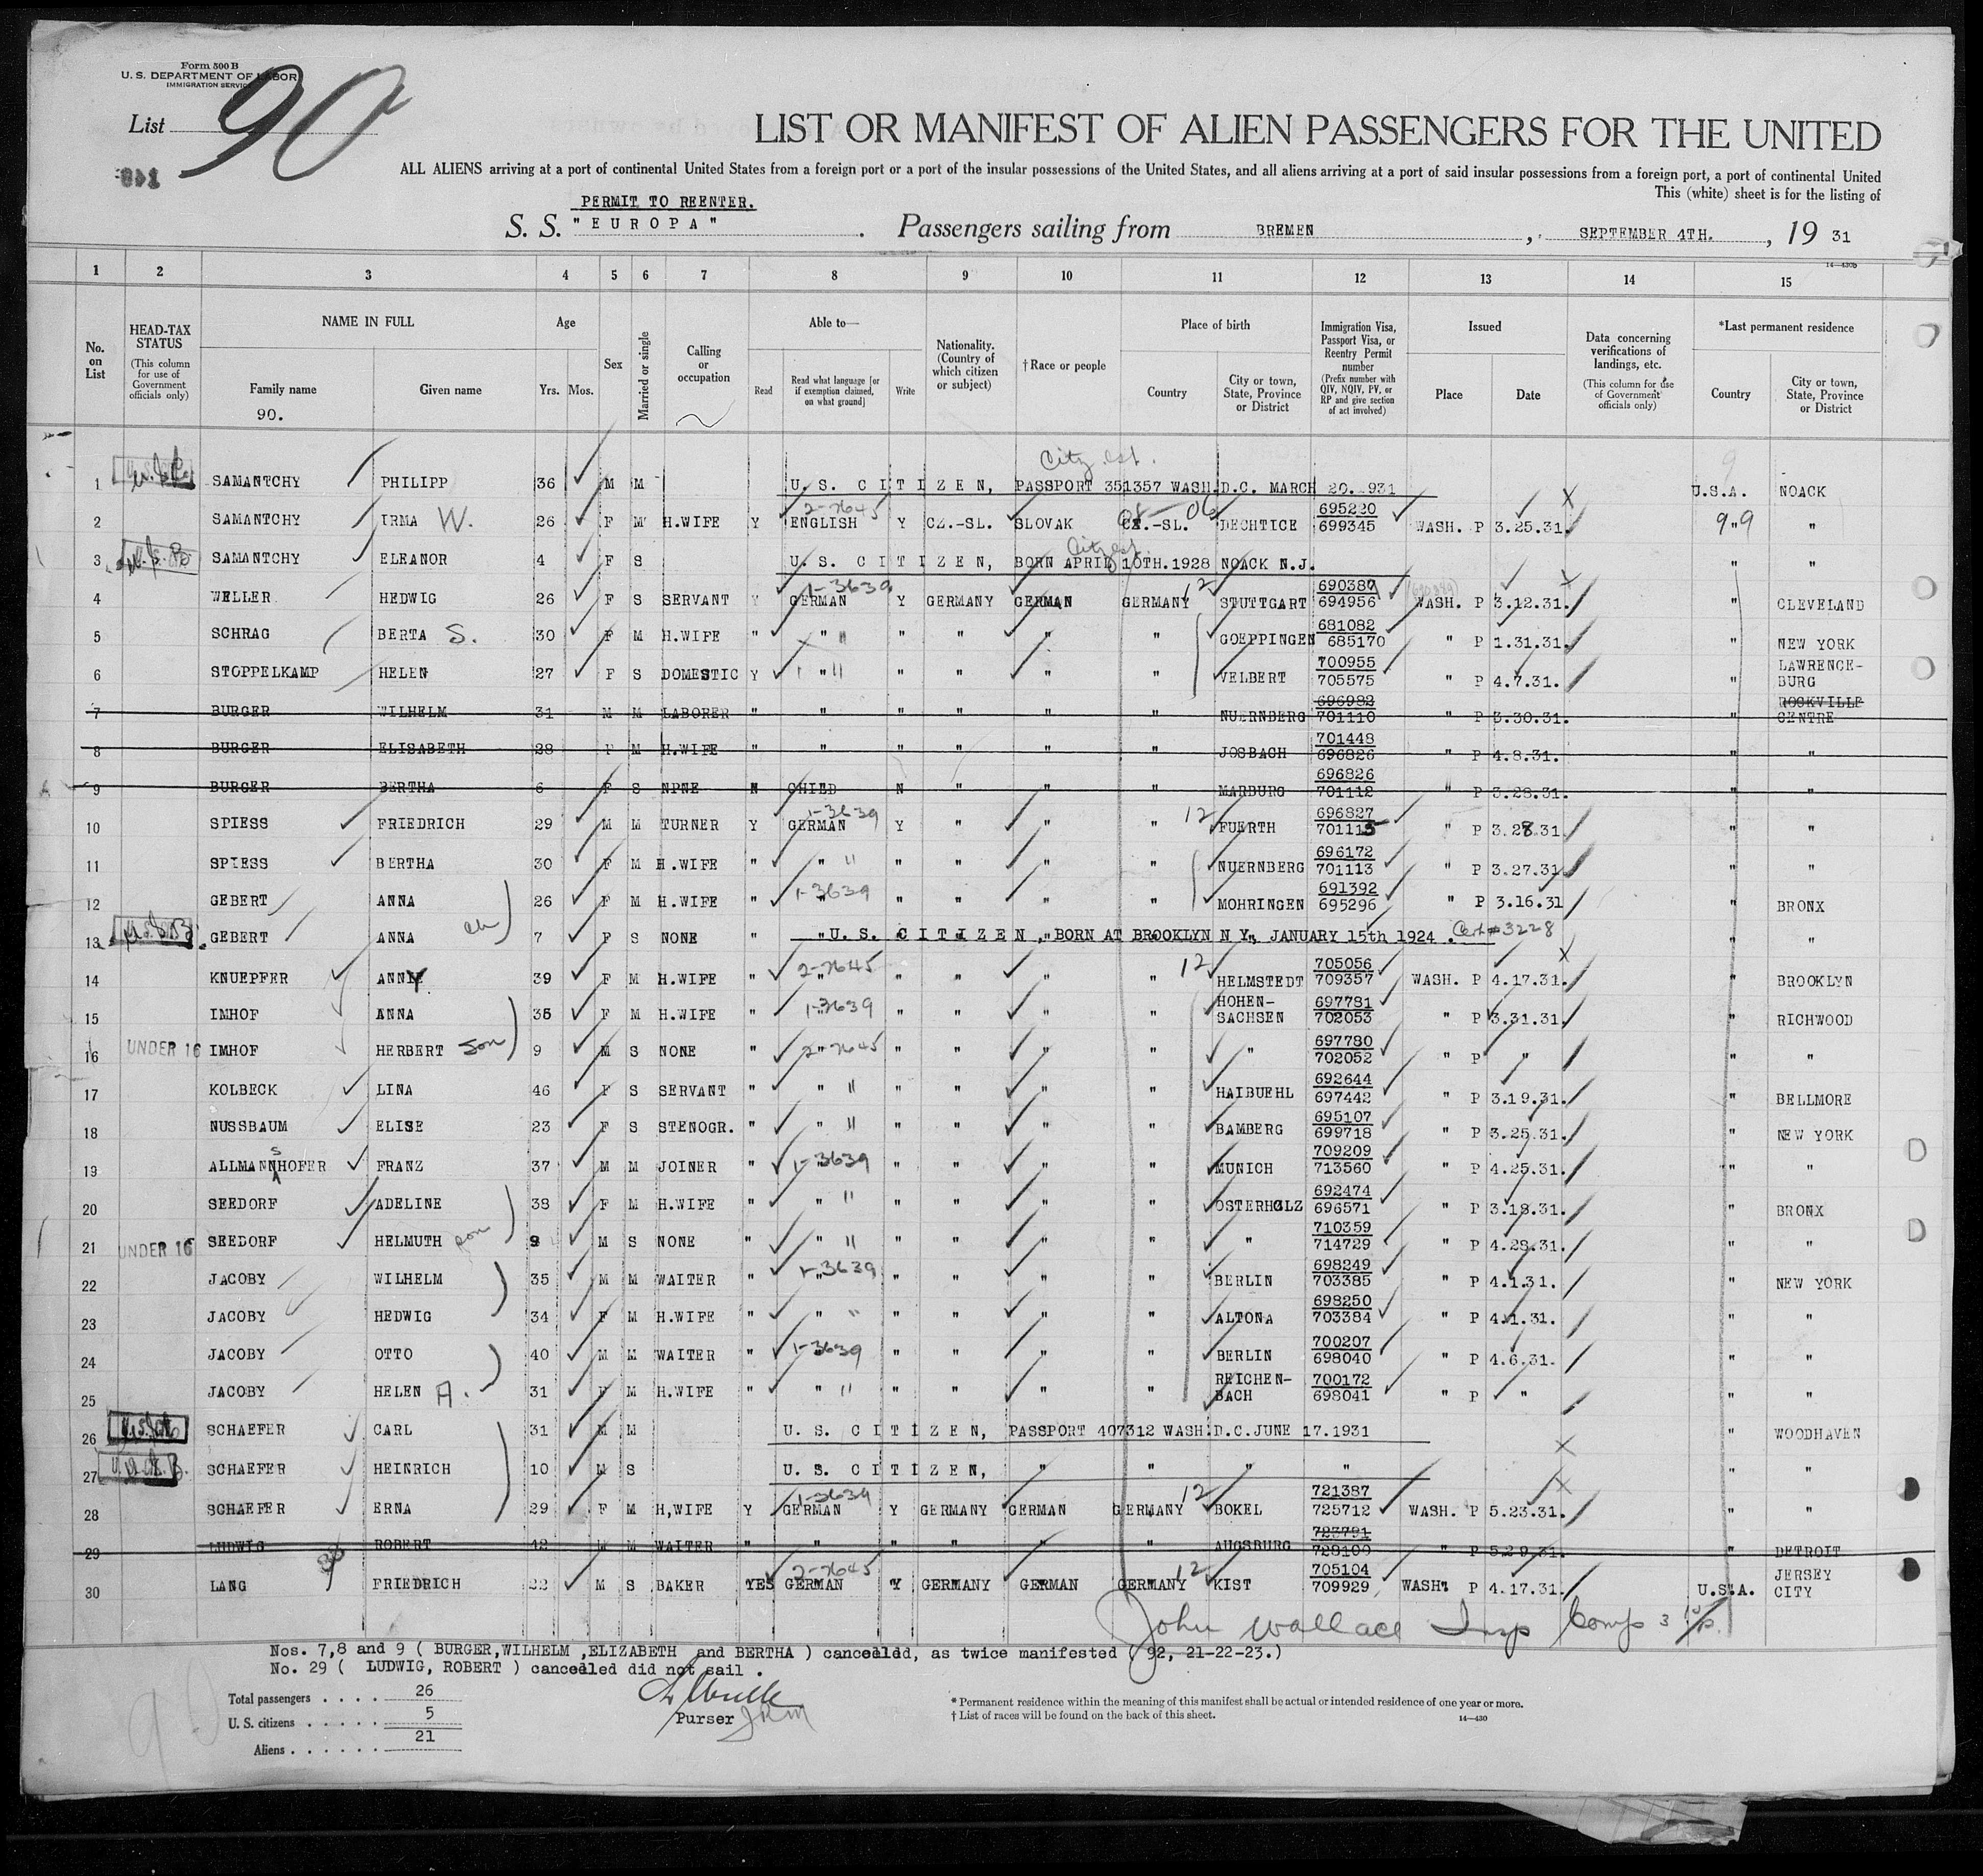 Form 500 B
U. S. DEPARTMENT OF LABOR
IMMIGRATION SERVICE
List 90
LIST OR MANIFEST OF ALIEN PASSENGERS FOR THE UNITED
ALL ALIENS arriving at a port of continental United States from a foreign port or a port of the insular possessions of the United States, and all aliens arriving at a port of said insular possessions from a foreign port, a port of continental United
This (white) sheet is for the listing of
PERMIT TO REENTER.
S. S. "EUROPA". Passengers sailing from BREMEN, SEPTEMBER 4TH., 19 31
14—430b
1 2 3 4 5 6 7 8 9 10 11 12 13 14 15
No. on List
HEAD-TAX STATUS (This column for use of Government officials only)
NAME IN FULL Family name Given name
90.
Age Yrs. Mos.
Sex
Married or single
Calling or occupation
Able to— Read Read what language [or if exemption claimed, on what ground] Write
Nationality. (Country of which citizen or subject)
†Race or people
Place of birth Country City or town, State, Province or District
Immigration Visa, Passport Visa, or Reentry Permit number (Prefix number with QIV, NQIV, PV, or RP and give section of act involved)
Issued Place Date
Data concerning verifications of landings, etc. (This column for use of Government officials only)
*Last permanent residence Country City or town, State, Province or District
City est.
1 SAMANTCHY PHILIPP 36 M M U. S. CITIZEN, PASSPORT 351357 WASH.D.C. MARCH 20. 931 U.S.A. NOACK
2 SAMANTCHY IRMA W. 26 F M H.WIFE Y 2-7645 ENGLISH Y CZ.-SL. SLOVAK CZ.-SL. DECHTICE 695220 699345 WASH. P 3.25.31. " "
3 SAMANTCHY ELEANOR 4 F S U. S. CITIZEN, BORN APRIL 10TH.1928 NOACK N.J. " "
4 WELLER HEDWIG 26 F S SERVANT Y 1-3639 GERMAN Y GERMANY GERMAN GERMANY 12 STUTTGART 690387 694956 WASH. P 3.12.31. " CLEVELAND
5 SCHRAG BERTA S. 30 F M H.WIFE " " " " " " GOEPPINGEN 681082 685170 " P 1.31.31. " NEW YORK
6 STOPPELKAMP HELEN 27 F S DOMESTIC Y " " " " " VELBERT 700955 705575 " P 4.7.31. " LAWRENCE-BURG
7 BURGER WILHELM 31 M M LABORER " " " " " " NUERNBERG 696982 701110 " P 3.30.31. " ROCKVILLE CENTRE
8 BURGER ELISABETH 28 F M H.WIFE " " " " " " JOSBACH 701448 696826 " P 4.8.31. " "
9 BURGER BERTHA 6 F S NPNE N CHILD N " " " MARBURG 696826 701112 " P 3.28.31. " "
10 SPIESS FRIEDRICH 29 M M TURNER Y 1-3639 GERMAN Y " " " 12 FUERTH 696827 701115 " P 3.28.31. " "
11 SPIESS BERTHA 30 F M H.WIFE " " " " " " NUERNBERG 696172 701113 " P 3.27.31. " "
12 GEBERT ANNA 26 F M H.WIFE " 1-3639 " " " " MOHRINGEN 691392 695296 " P 3.16.31 " BRONX
13 GEBERT ANNA ch 7 F S NONE " U. S. CITIZEN, BORN AT BROOKLYN N Y, JANUARY 15th 1924. Cert # 3228 " "
14 KNUEPFER ANNY 39 F M H.WIFE " 2-7645 " " " " 12 HELMSTEDT 705056 709357 WASH. P 4.17.31. " BROOKLYN
15 IMHOF ANNA 35 F M H.WIFE " 1-3639 " " " " HOHEN-SACHSEN 697781 702053 " P 3.31.31. " RICHWOOD
16 UNDER 16 IMHOF HERBERT son 9 M S NONE " 2-7645 " " " " " 697780 702052 " P " " "
17 KOLBECK LINA 46 F S SERVANT " " " " " " HAIBUEHL 692644 697442 " P 3.19.31. " BELLMORE
18 NUSSBAUM ELISE 23 F S STENOGR. " " " " " " BAMBERG 695107 699718 " P 3.25.31. " NEW YORK
19 ALLMANNSHOFER FRANZ 37 M M JOINER " 1-3639 " " " " MUNICH 709209 713560 " P 4.25.31. " "
20 SEEDORF ADELINE 38 F M H.WIFE " " " " " " OSTERHOLZ 692474 696571 " P 3.18.31. " BRONX
21 UNDER 16 SEEDORF HELMUTH son 9 M S NONE " " " " " " " 710359 714729 " P 4.28.31. " "
22 JACOBY WILHELM 35 M M WAITER " 1-3639 " " " " BERLIN 698249 703385 " P 4.1.31. " NEW YORK
23 JACOBY HEDWIG 34 F M H.WIFE " " " " " " ALTONA 698250 703384 " P 4.1.31. " "
24 JACOBY OTTO 40 M M WAITER " 1-3639 " " " " BERLIN 700207 698040 " P 4.6.31. " "
25 JACOBY HELEN A. 31 F M H.WIFE " " " " " " REICHEN-BACH 700172 698041 " P " " "
26 SCHAEFER CARL 31 M M U. S. CITIZEN, PASSPORT 407312 WASH.D.C.JUNE 17.1931 " WOODHAVEN
27 SCHAEFER HEINRICH 10 M S U. S. CITIZEN, " " " " " "
28 SCHAEFER ERNA 29 F M H,WIFE Y 1-3639 GERMAN Y GERMANY GERMAN GERMANY 12 BOKEL 721387 725712 WASH. P 5.23.31. " "
29 LUDWIG ROBERT 42 M M WAITER " " " " " " AUGSBURG 723791 728100 " P 5.29.31. " DETROIT
30 LANG FRIEDRICH 22 M S BAKER YES 2-7645 GERMAN Y GERMANY GERMAN GERMANY 12 KIST 705104 709929 WASH. P 4.17.31. U.S.A. JERSEY CITY
John Wallace Insp
Nos. 7,8 and 9 ( BURGER,WILHELM ,ELIZABETH and BERTHA ) cancelled, as twice manifested ( 92, 21-22-23.)
No. 29 ( LUDWIG, ROBERT ) cancelled did not sail .
Total passengers . . . . 26
U. S. citizens . . . . . 5
Aliens . . . . . . 21
Purser
* Permanent residence within the meaning of this manifest shall be actual or intended residence of one year or more.
† List of races will be found on the back of this sheet.
14—430
90